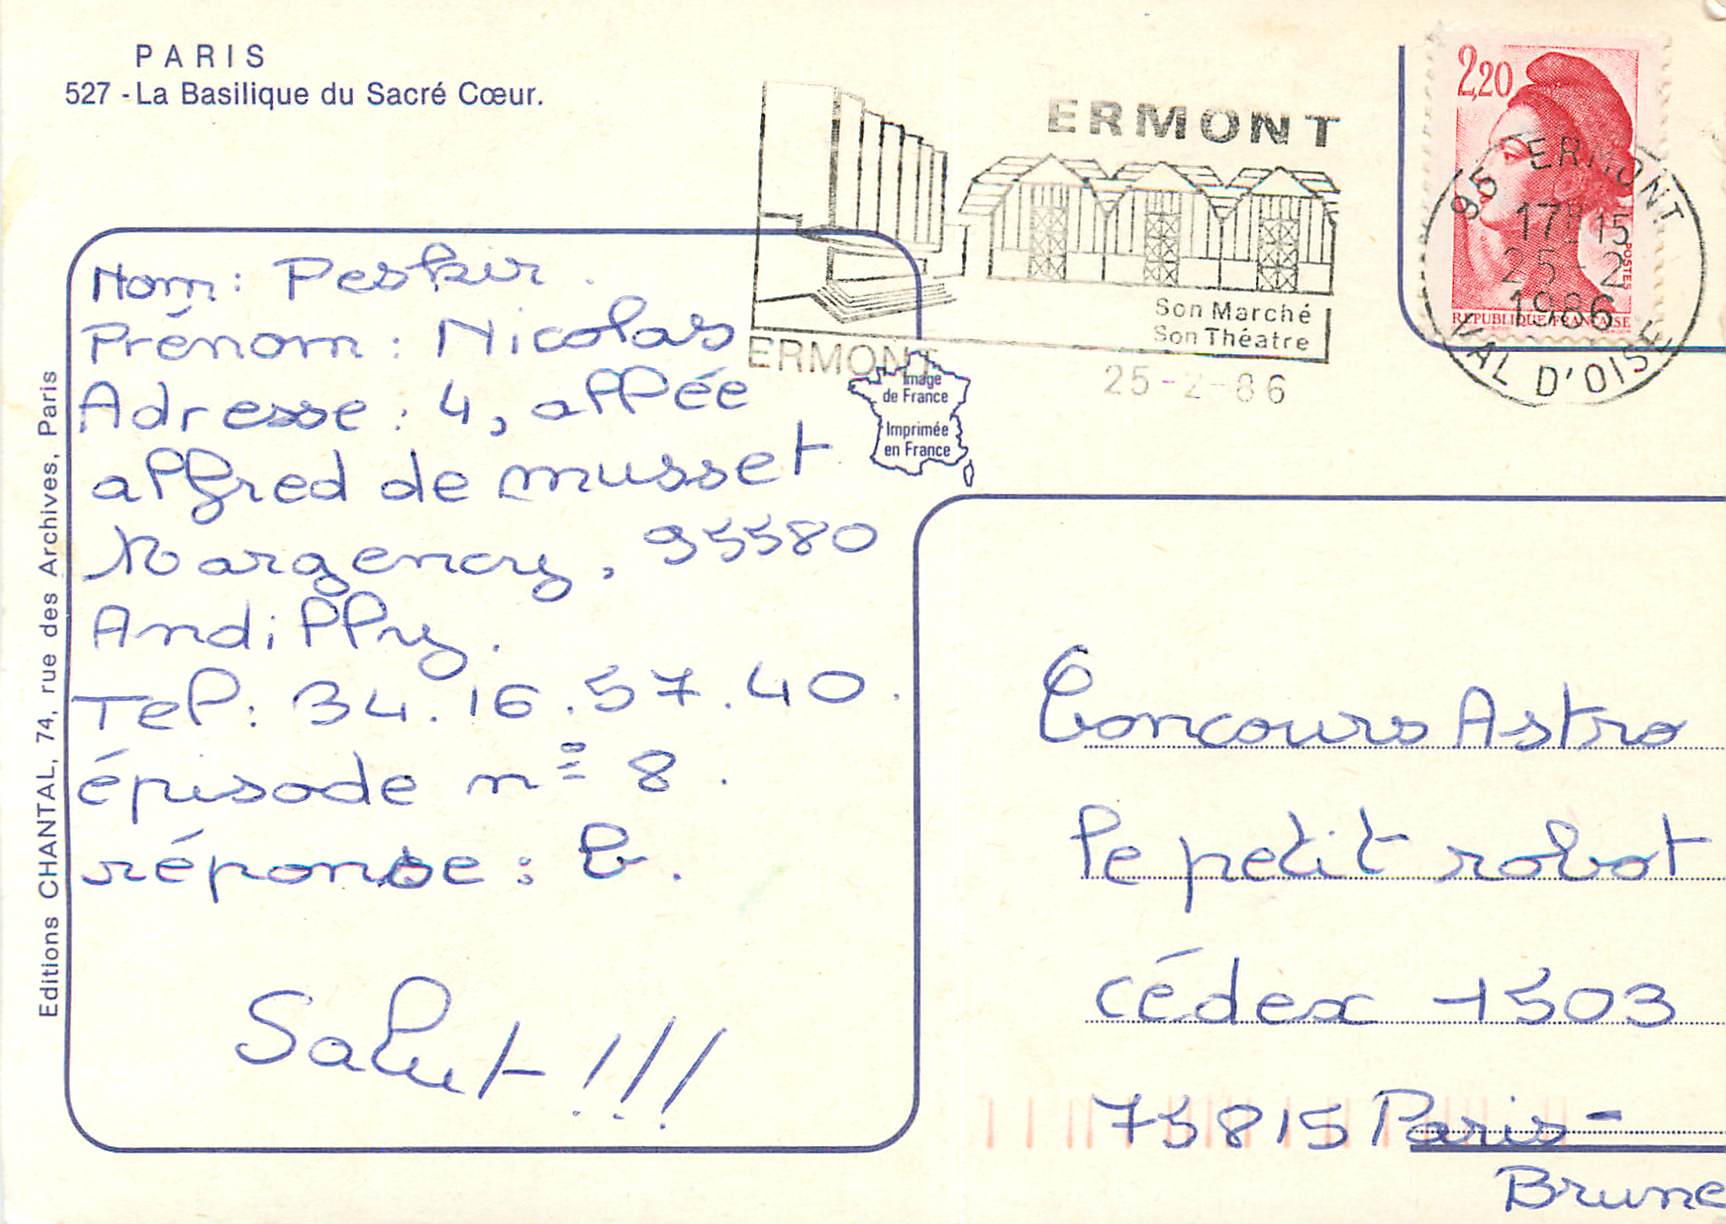 PARIS
527 - La Basilique du Sacré Cœur.
ERMONT
Son Marché
Son Théatre
ERMONT
25-2-86
2,20
POSTES
REPUBLIQUE FRANÇAISE
95 ERMONT
17H15
25-2
1986
VAL D'OISE
Image
de France
Imprimée
en France
Editions CHANTAL, 74, rue des Archives, Paris
Nom: Peskir.
Prénom: Nicolas
Adresse: 4, allée
alfred de musset
Margency, 95580
Andilly.
Tel: 34.16.57.40.
épisode nº 8.
réponse: B.
Salut!!!
Concours Astro
le petit robot
cédex 1503
75815 Paris-
Brune